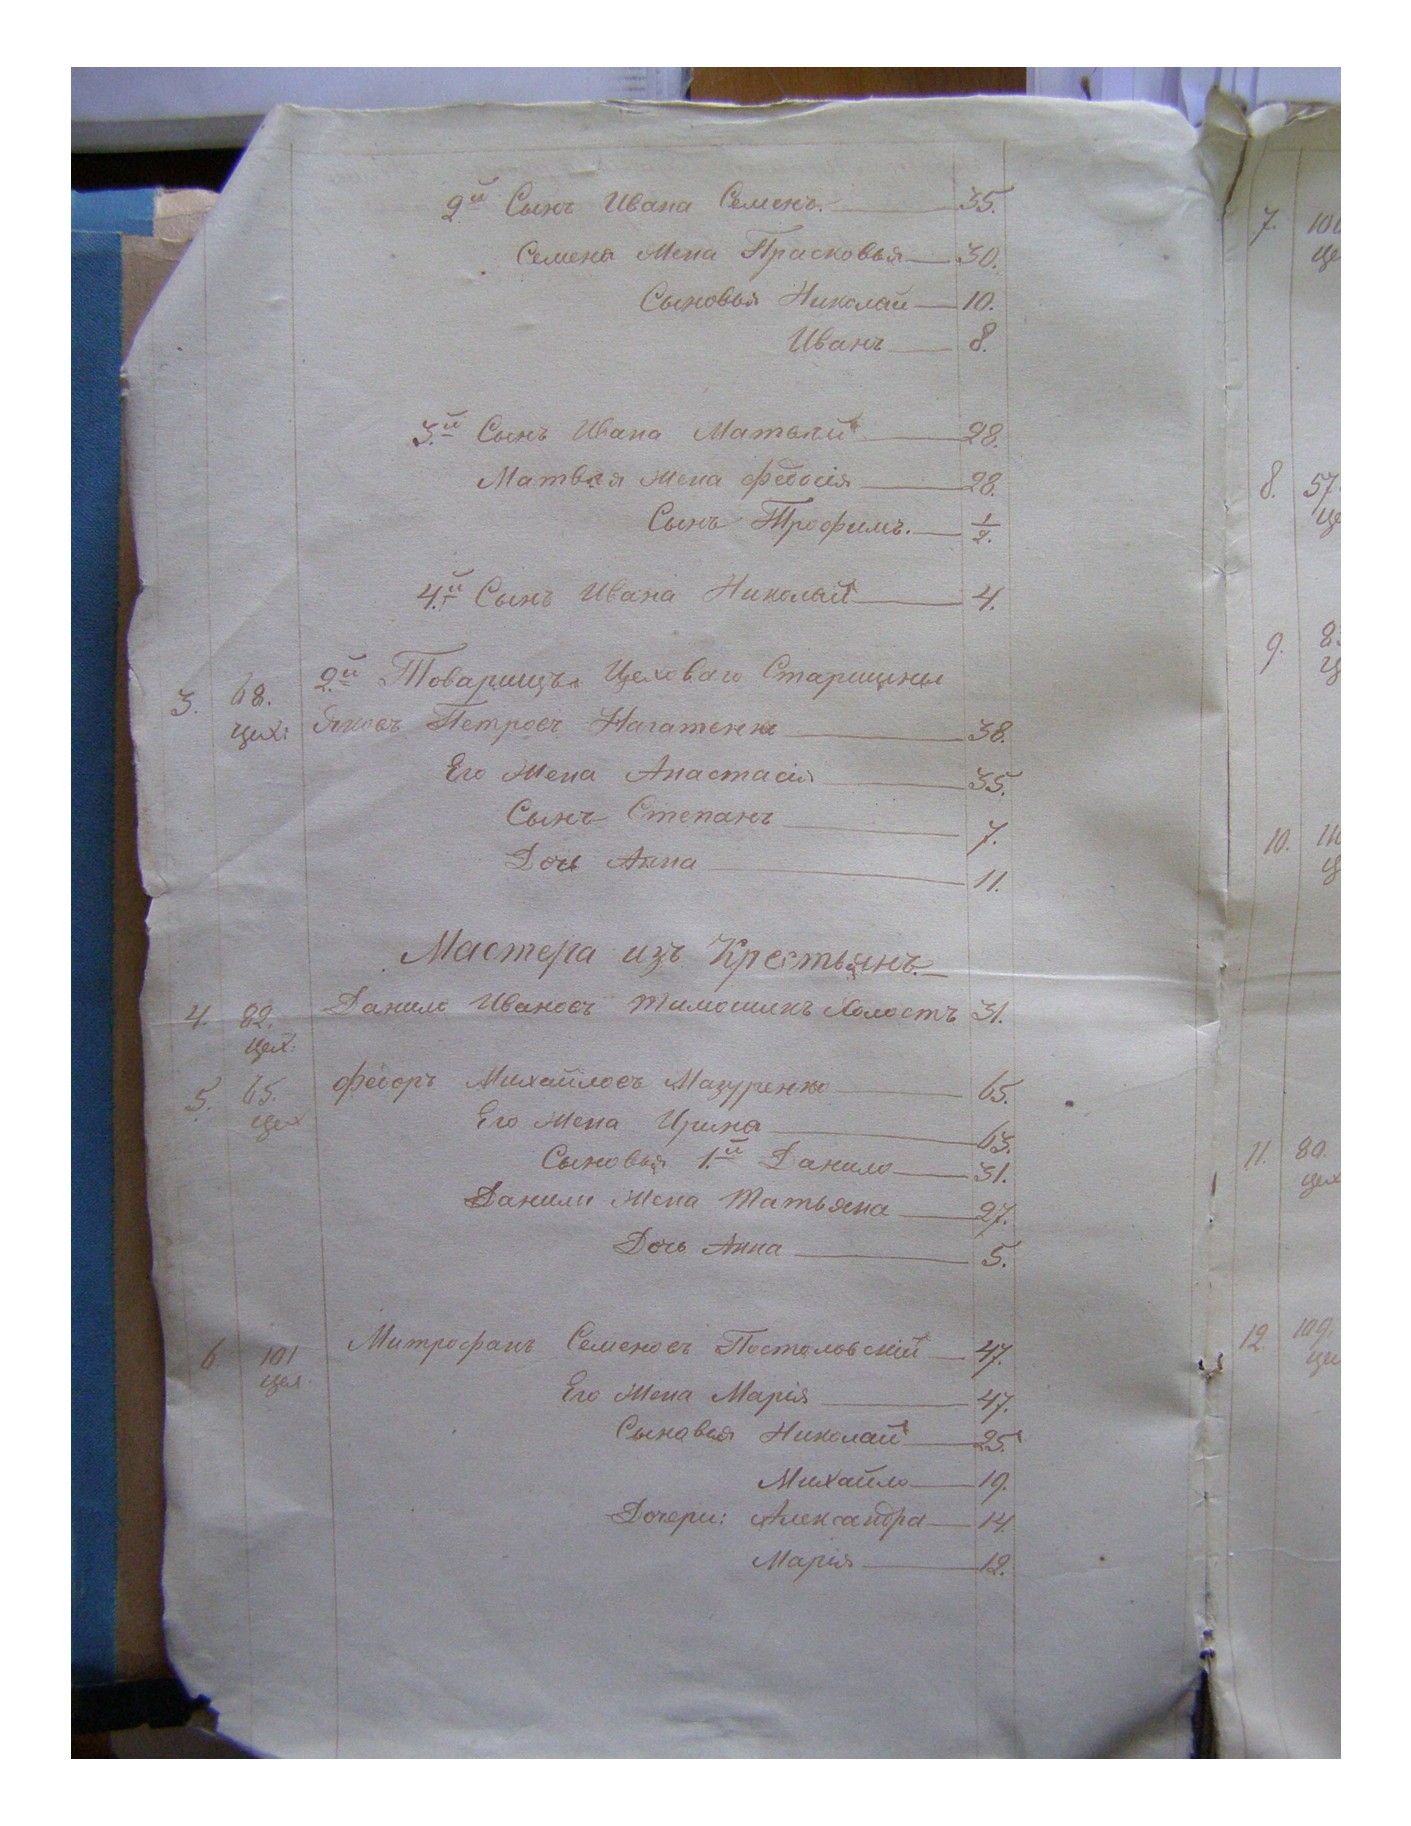 2й Сынъ Ивана Семенъ. 35.
Семена Жена Прасковья 30.
Сыновья Николай 10.
Иванъ 8.
3.й Сынъ Ивана Матвѣй 28.
Матвѣя Жена Федосія 28.
Сынъ Трофимъ. 1/2.
4.й Сынъ Ивана Николай 4.
3. 68. 2.й Товарищъ Цеховаго Старшины
цех: Яковъ Петровъ Нагатенко 38.
Его Жена Анастасія 35.
Сынъ Степанъ 7.
Дочь Анна 11.
Мастера изъ Крестьянъ.
4. 82. Данило Ивановъ Тимошикъ Холостъ 31.
цех.
5. 65. Федоръ Михайловъ Мазуренко 65.
цех Его Жена Ирина 63.
Сыновья 1.й Данило 31.
Данили Жена Татьяна 27.
Дочь Анна 5.
6 101 Митрофанъ Семеновъ Постоловскій 47.
цех. Его Жена Марія 47.
Сыновья Николай 25.
Михайло 19.
Дочери: Александра 14.
Марія 12.
7.
8. 57
9.
10.
11. 80.
цех
12. 109.